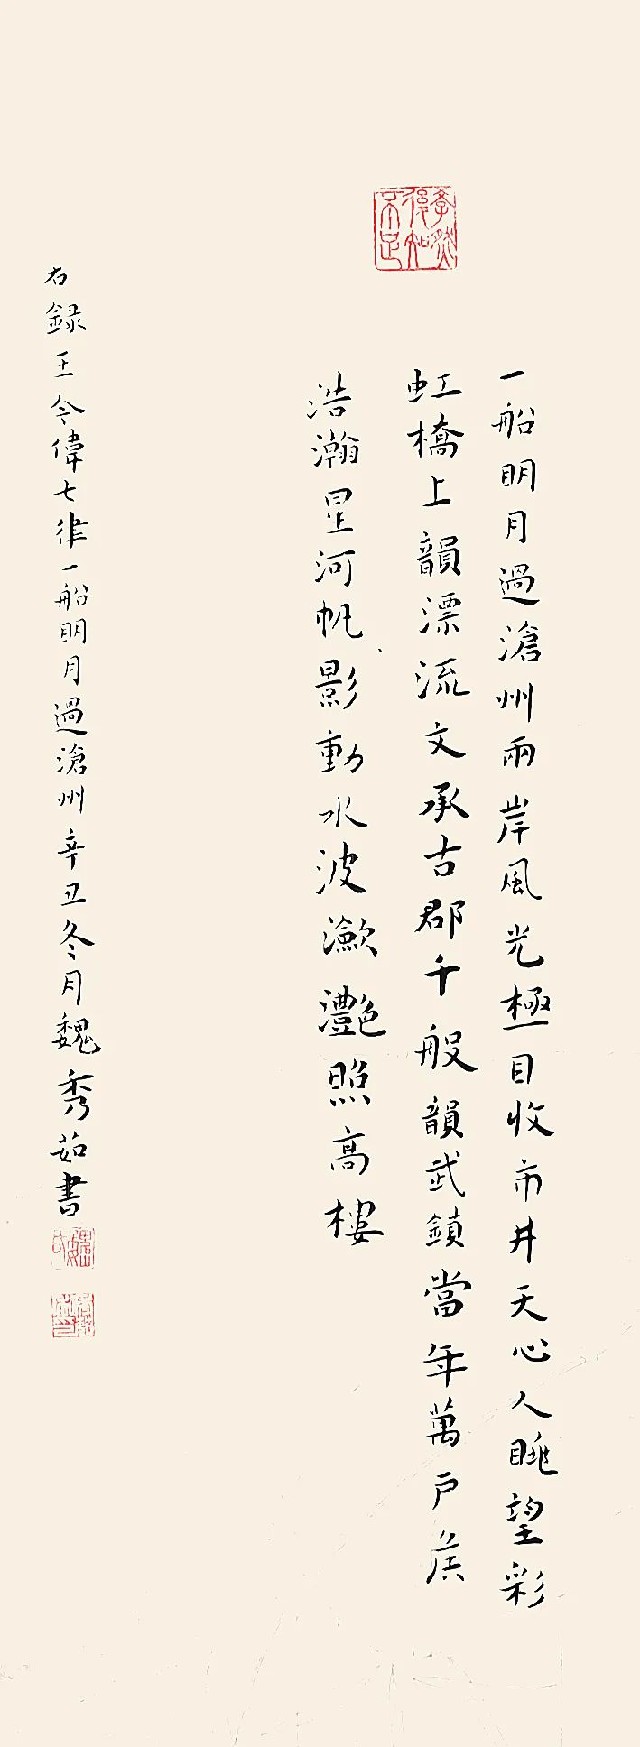 學然後知不足
一船明月過滄州兩岸風光極目收市井天心人眺望彩
虹橋上韻漂流文承古郡千般韻武鎮當年萬戶侯
浩瀚星河帆影動水波瀲灧照高樓
右錄王令偉七律一船明月過滄州辛丑冬月魏秀茹書